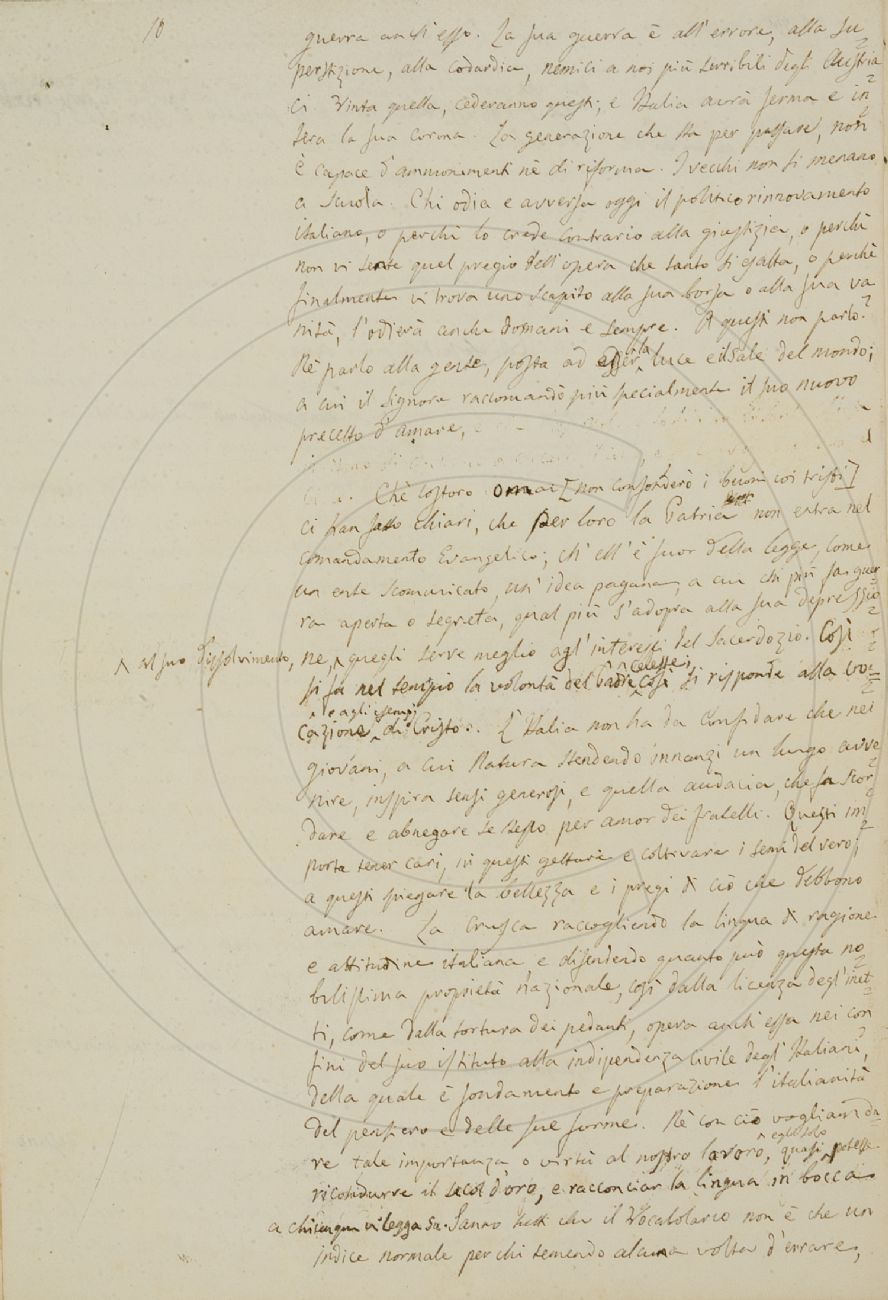 10
guerra anch'esso. La sua guerra è all'errore, alla su
perstizione, alla codardia, nemici a noi più terribili degli Austria
ci. Vinta quella, cederanno questi; e Italia avrà ferma e in
tera la sua corona. La generazione che sta per passare, non
è capace d'ammonimenti nè di riforma. I vecchi non si menano
a scuola. Chi odia e avversa oggi il politico rinnovamento
italiano, o perchè lo crede contrario alla giustizia, o perchè
non vi sente quel pregio dell'opera che tanto si esalta, o perchè
finalmente vi trova uno scapito alla sua borsa o alla sua va
nità, l'odierà anche domani e sempre. A questi non parlo.
Nè parlo alla gente, posta ad esser la luce e il sale del mondo;
a cui il Signore raccomandò più specialmente il suo nuovo
precetto d'amare,
Chè costoro omai [non confonderò i buoni coi tristi]
ci han fatto chiari, che per loro la Patria non entra nel
comandamento Evangelico; ch'ell'è fuor della legge, come
un ente scomunicato, un'idea pagana, a cui chi più fa guer
ra aperta o segreta, qual più s'adopra alla sua depressio
^ al suo dissolvimento, ne, ^ quegli serve meglio agl'interessi del Sacerdozio. Così
si fa nel tempio la volontà del Padre ^ celeste; Così si risponde alla vo
cazione ^ e agli esempi di Cristo. L'Italia non ha da confidare che nei
giovani, a cui Natura stendendo innanzi un lungo avve
nire, inspira sensi generosi, e quella audacia, che fa scor
dare e abnegare se stesso per amor dei fratelli. Questi im
porta tener cari, in questi gettare e coltivare i semi del vero;
a questi spiegare la bellezza e i pregi di ciò che debbono
amare. La Crusca raccogliendo la lingua di ragione
e attitudine italiana e difendendo quanto può questa no
bilissima proprietà nazionale, così dalla licenza degl'inet
ti, come dalla tortura dei pedanti, opera anch'essa nei con
fini del suo istituto alla indipendenza civile degl'Italiani,
della quale è fondamento e preparazione l'italianità
del pensiero e delle sue forme. Nè con ciò vogliam da
re tale importanza o virtù al nostro lavoro, quasi ^ egli solo potesse
ricondurre il secol d'oro, e racconciar la lingua in bocca
a chiunque vi legga su. Sanno tutti che il Vocabolario non è che un
indice normale per chi temendo alcuna volta d'errare,